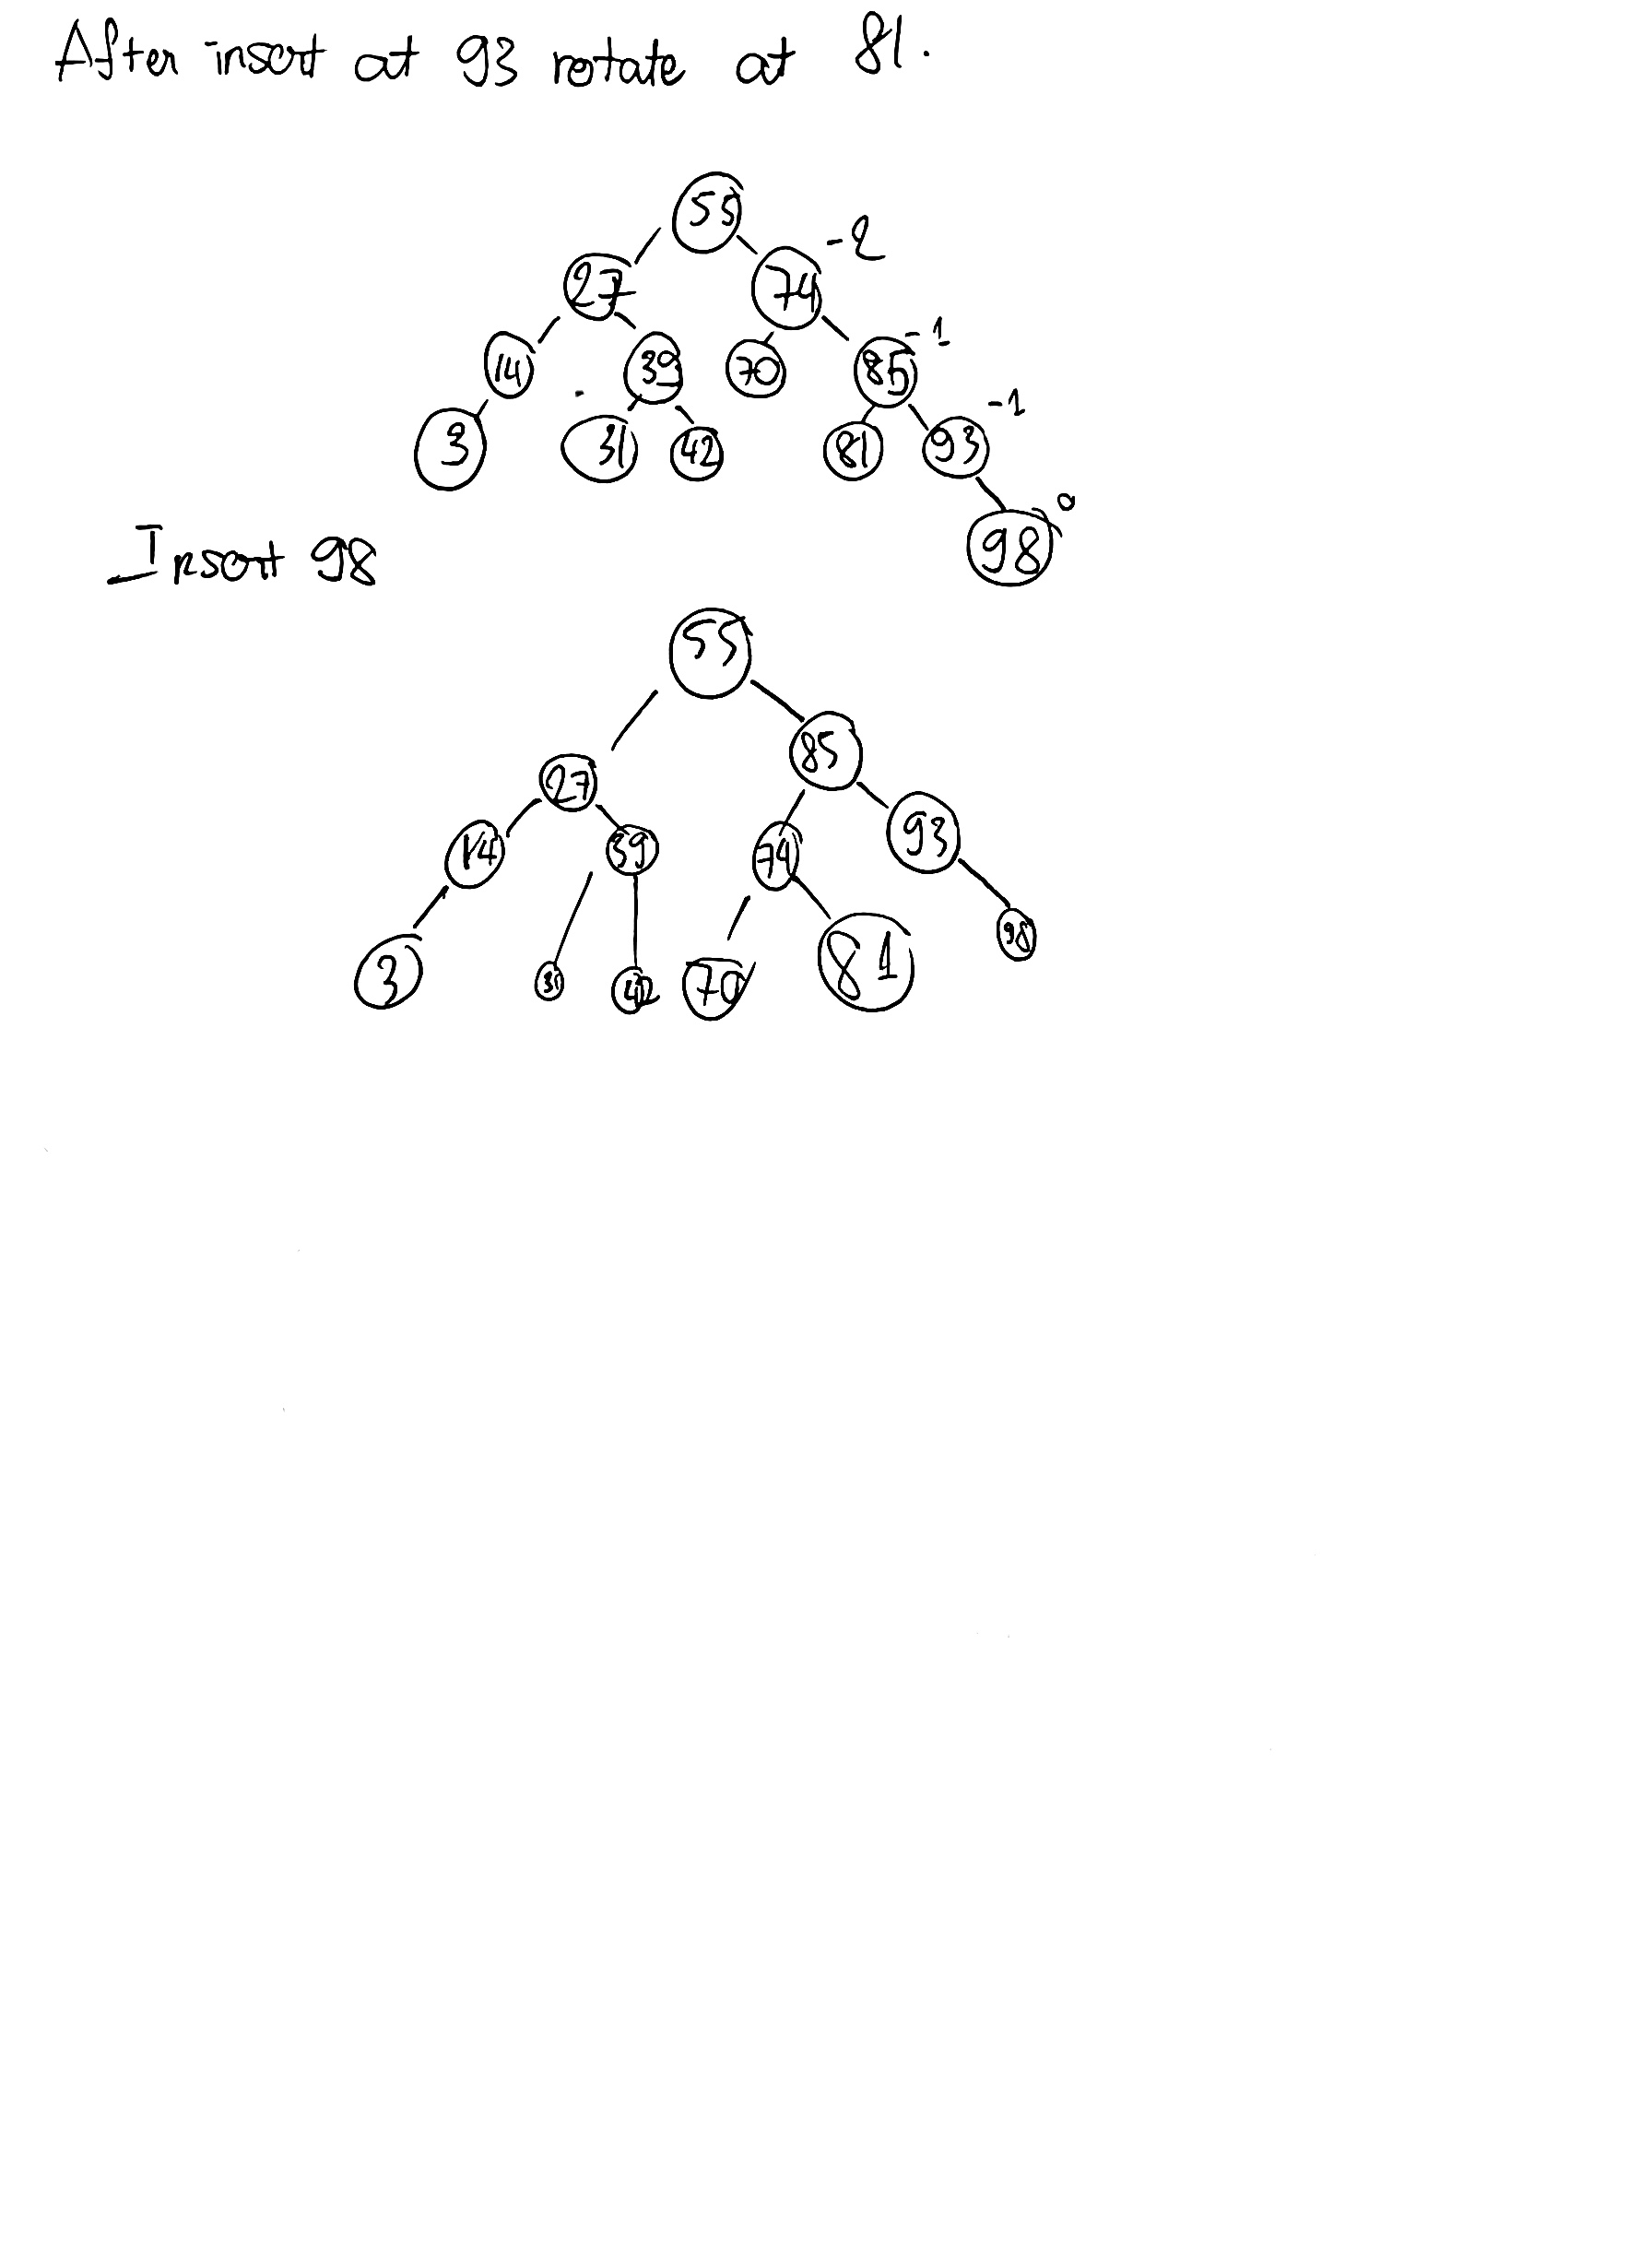 After insert at 93 rotate at 81.
55
-2
27 74
-1
14 39 70 85
-1
3 31 42 81 93
0
98
Insert 98
55
85
27
93
14 39 74
98
3 31 42 70 81